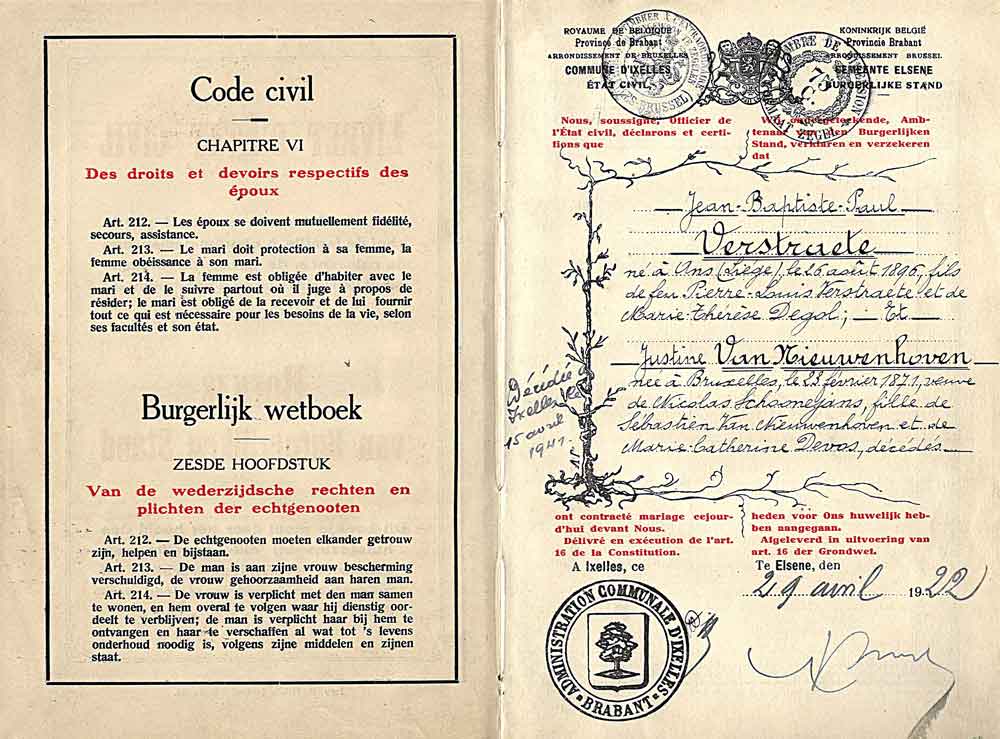 Code civil
CHAPITRE VI
Des droits et devoirs respectifs des
époux
Art. 212. — Les époux se doivent mutuellement fidélité,
secours, assistance.
Art. 213. — Le mari doit protection à sa femme, la
femme obéissance à son mari.
Art. 214. — La femme est obligée d'habiter avec le
mari et de le suivre partout où il juge à propos de
résider; le mari est obligé de la recevoir et de lui fournir
tout ce qui est nécessaire pour les besoins de la vie, selon
ses facultés et son état.
Burgerlijk wetboek
ZESDE HOOFDSTUK
Van de wederzijdsche rechten en
plichten der echtgenooten
Art. 212. — De echtgenooten moeten elkander getrouw
zijn, helpen en bijstaan.
Art. 213. — De man is aan zijne vrouw bescherming
verschuldigd, de vrouw gehoorzaamheid aan haren man.
Art. 214. — De vrouw is verplicht met den man samen
te wonen, en hem overal te volgen waar hij dienstig oor-
deelt te verblijven; de man is verplicht haar bij hem te
ontvangen en haar te verschaffen al wat tot 's levens
onderhoud noodig is, volgens zijne middelen en zijnen
staat.
ROYAUME DE BELGIQUE
Province de Brabant
ARRONDISSEMENT DE BRUXELLES
COMMUNE D'IXELLES
ÉTAT CIVIL
KONINKRIJK BELGIË
Provincie Brabant
ARRONDISSEMENT BRUSSEL
GEMEENTE ELSENE
BURGERLIJKE STAND
75
C.
Nous, soussigné, Officier de
l'État civil, déclarons et certi-
fions que
Wij, ondergeteekende, Amb-
tenaar van den Burgerlijken
Stand, verklaren en verzekeren
dat
Jean-Baptiste-Paul
Verstraete
né à Ans (Liège), le 26 août 1896, fils
de feu Pierre-Louis Verstraete et de
Marie-Thérèse Degol; — Et
Justine Van Nieuwenhoven
née à Bruxelles, le 23 février 1871, veuve
de Nicolas Schoonejans, fille de
Sébastien Van Nieuwenhoven et de
Marie-Catherine Devos, décédés
Décédée
Ixelles le
15 avril
1941.
ont contracté mariage cejour-
d'hui devant Nous.
Délivré en exécution de l'art.
16 de la Constitution.
A Ixelles, ce
heden vóór Ons huwelijk heb-
ben aangegaan.
Afgeleverd in uitvoering van
art. 16 der Grondwet.
Te Elsene, den
29 avril 1922
ADMINISTRATION COMMUNALE D'IXELLES
BRABANT